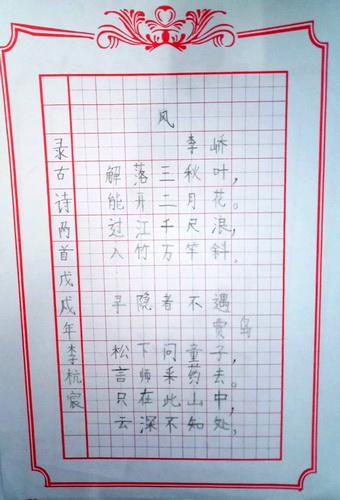 风
李峤
解落三秋叶，
能开二月花。
过江千尺浪，
入竹万竿斜.
寻隐者不遇
贾岛
松下问童子，
言师采药去。
只在此山中，
云深不知处，
录古诗两首戊戌年李杭宸